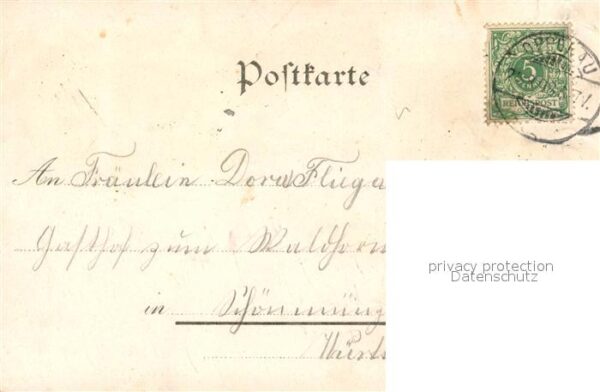 Postkarte
5
REICHSPOST
An Fräulein Dora Fliega
Gasthof zum Waldhorn
in Schönmünz
Württ
privacy protection
Datenschutz